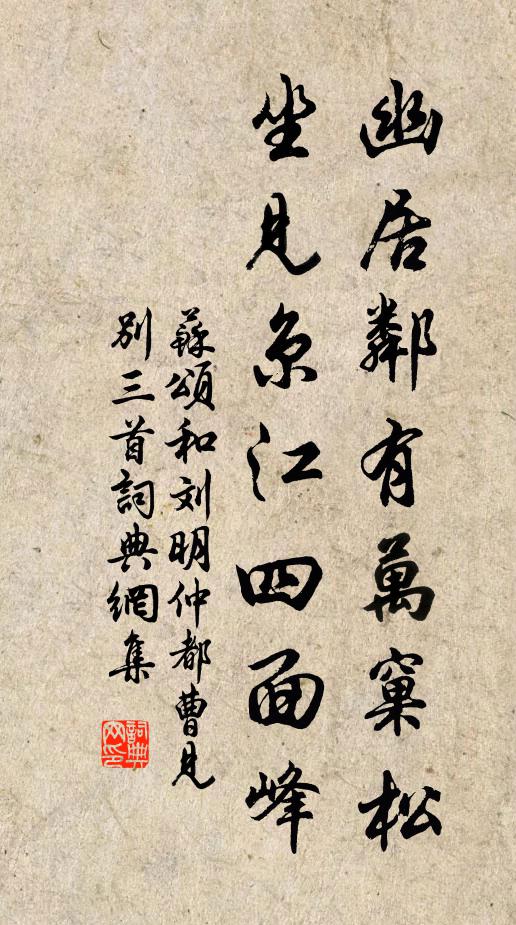 幽居鄰有萬窠松
坐見京江四面峰
蘇頌和刘明仲都曹見
別三首詞典網集
詞典